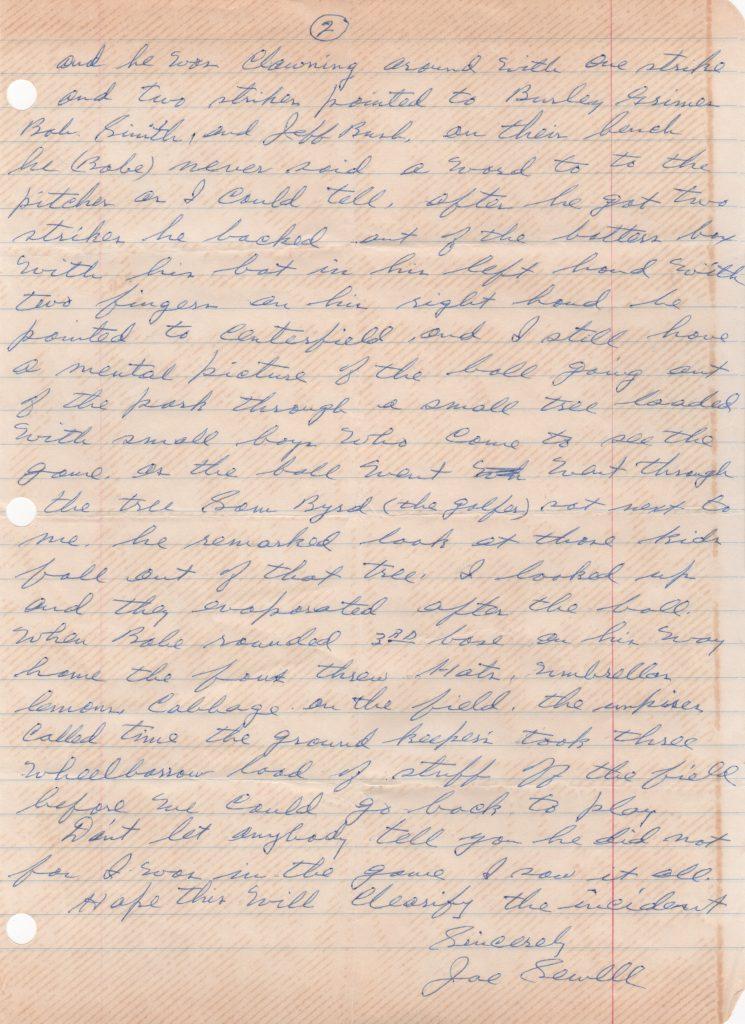 2
and he was Clowning around with one strike
and two strikes pointed to Burley Grimes
Bob. Smith, and Jeff Bush, on their bench
he (Babe) never said a word to to the
pitcher as I could tell, after he got two
strikes he backed out of the batters box
with his bat in his left hand with
two fingers on his right hand he
pointed to centerfield, and I still have
a mental picture of the ball going out
of the park through a small tree loaded
with small boys who come to see the
game. as the ball went went through
the tree Sam Byrd (the golfer) sat next to
me. he remarked look at those kids
fall out of that tree, I looked up
and they evaporated after the ball.
When Babe rounded 3RD base on his way
home the fans threw Hats, Umbrellas
lemons Cabbage on the field, the umpires
Called time the ground keepers took three
wheelbarrow load of stuff off the field
before we could go back to play
Don't let anybody tell you he did not
for I was in the game I saw it all.
Hope this will Clearify the incident
Sincerely
Joe Sewell